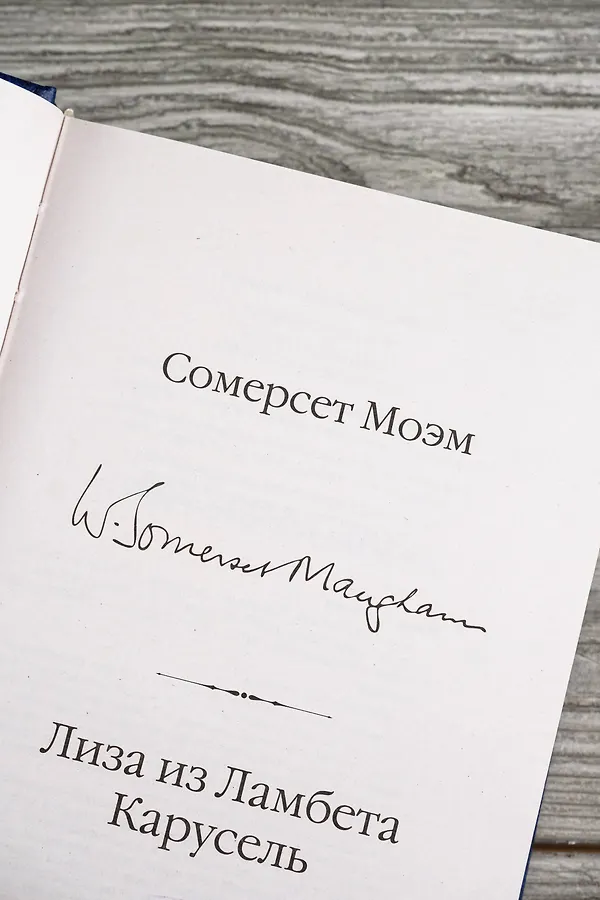 Сомерсет Моэм
W. Somerset Maugham
Лиза из Ламбета
Карусель